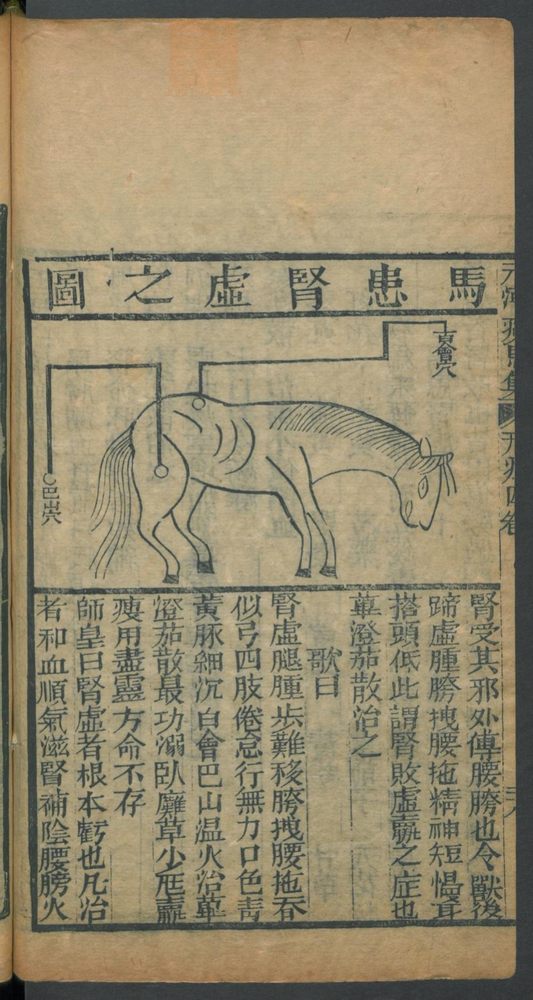 馬患腎虛之圖
百會穴
巴山穴
腎受其邪外傳腰胯也令獸後
蹄虛腫胯拽腰拖精神短慢耳
搭頭低此謂腎敗虛羸之症也
蓽澄茄散治之
歌曰
腎虛腿腫步難移胯拽腰拖脊
似弓四肢倦怠行無力口色青
黃脉細沉白會巴山温火治蓽
澄茄散最功溺臥靡草少尫羸
瘦用盡靈方命不存
師皇曰腎虛者根本虧也凡治
者和血順氣滋腎補陰腰胯火